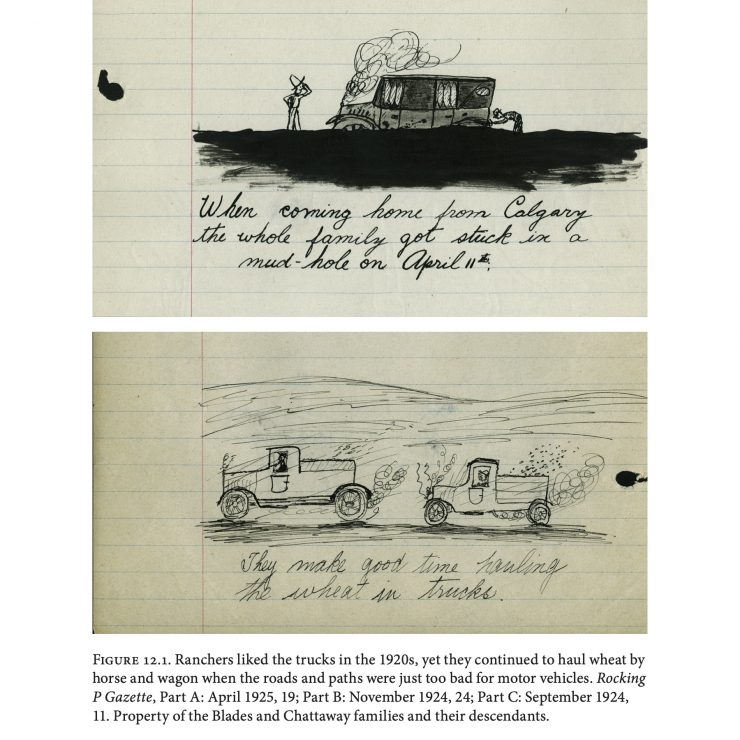 When coming home from Calgary
the whole family got stuck in a
mud-hole on April 11th.
They make good time hauling
the wheat in trucks.
FIGURE 12.1. Ranchers liked the trucks in the 1920s, yet they continued to haul wheat by
horse and wagon when the roads and paths were just too bad for motor vehicles. Rocking
P Gazette, Part A: April 1925, 19; Part B: November 1924, 24; Part C: September 1924,
11. Property of the Blades and Chattaway families and their descendants.